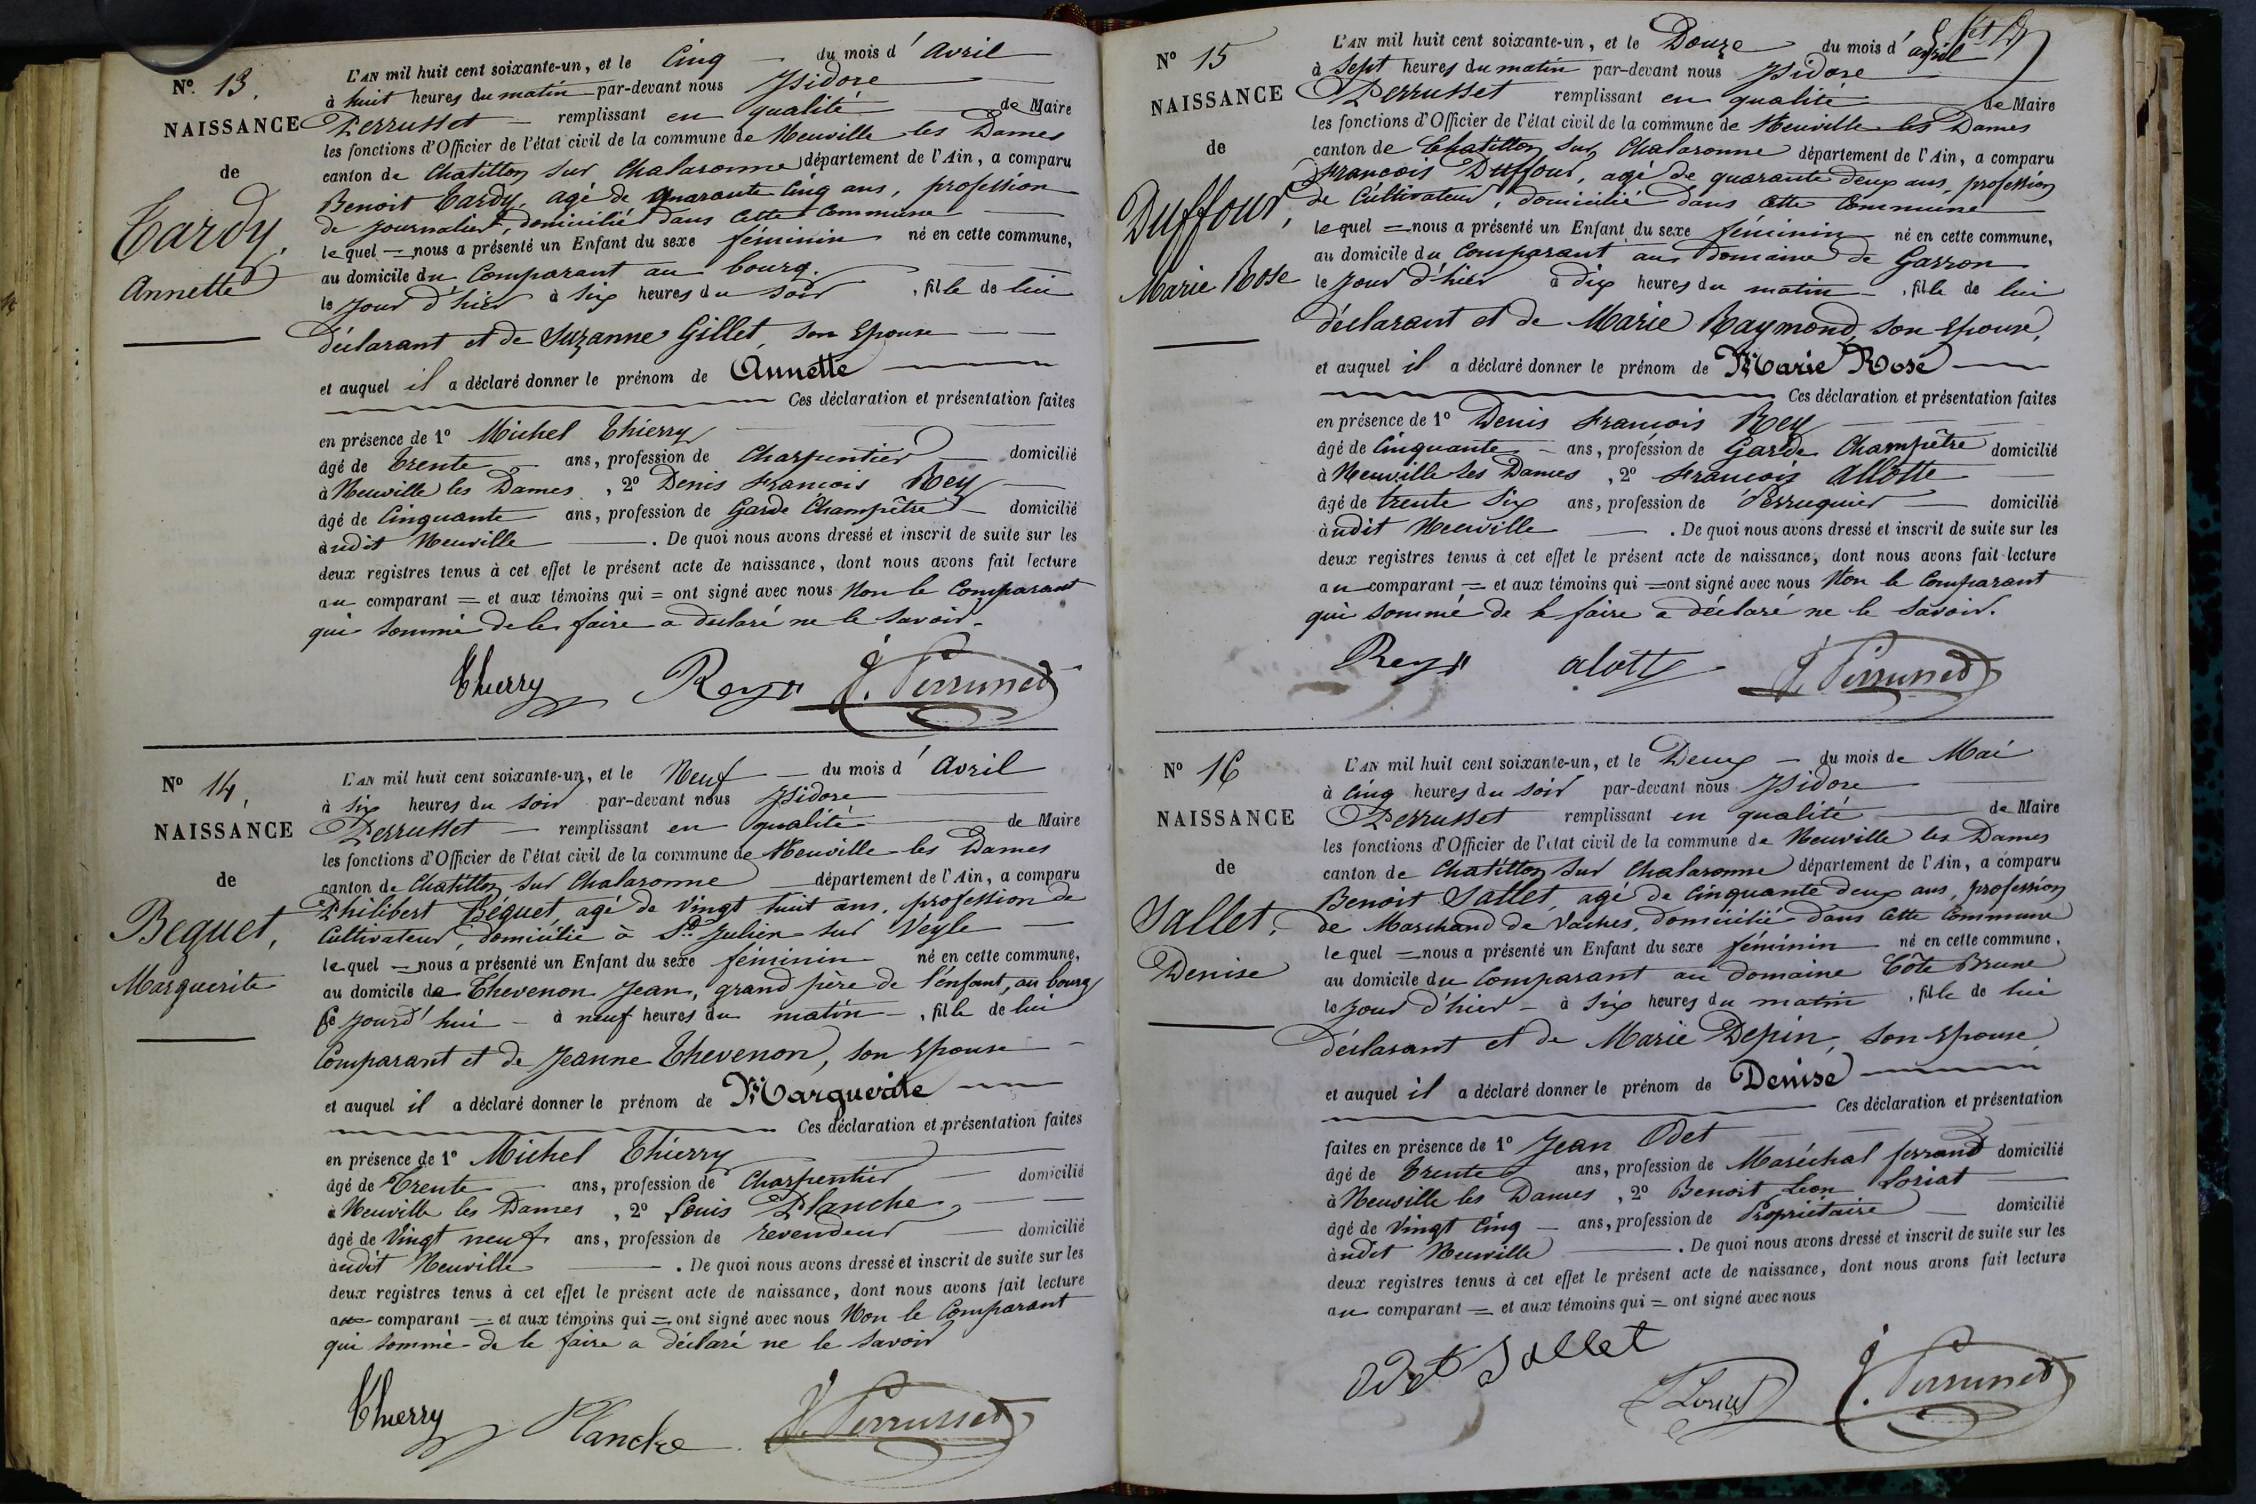 Nº 13.
NAISSANCE
de
Tardy,
Annette
L'AN mil huit cent soixante-un, et le Cinq du mois d'Avril
à huit heures du matin par-devant nous Isidore
Perrusset remplissant en qualité de Maire
les fonctions d'Officier de l'état civil de la commune de Neuville les Dames
canton de Chatillon sur Chalaronne département de l'Ain, a comparu
Benoit Tardy, agé de quarante Cinq ans, profession
de journalier, domicilié dans cette Commune
le quel = nous a présenté un Enfant du sexe féminin né en cette commune,
au domicile du Comparant au bourg.
le jour d'hier à six heures du soir, fille de lui
déclarant et de Suzanne Gillet, son Epouse
et auquel il a déclaré donner le prénom de Annette
Ces déclaration et présentation faites
en présence de 1º Michel Thierry
âgé de trente ans, profession de Charpentier domicilié
à Neuville les Dames, 2º Denis François Rey
âgé de Cinquante ans, profession de Garde Champêtre domicilié
audit Neuville. De quoi nous avons dressé et inscrit de suite sur les
deux registres tenus à cet effet le présent acte de naissance, dont nous avons fait lecture
au comparant = et aux témoins qui = ont signé avec nous Non le Comparant
qui sommé de le faire a déclaré ne le savoir.
Thierry Rey J. Perrusset
Nº 14,
NAISSANCE
de
Bequet,
Marguerite
L'AN mil huit cent soixante-un, et le Neuf du mois d'Avril
à six heures du soir par-devant nous Isidore
Perrusset remplissant en qualité de Maire
les fonctions d'Officier de l'état civil de la commune de Neuville les Dames
canton de Chatillon sur Chalaronne département de l'Ain, a comparu
Philibert Béquet, agé de vingt huit ans, profession de
Cultivateur, domicilié à St Julien sur Veyle
le quel = nous a présenté un Enfant du sexe féminin né en cette commune,
au domicile de Thevenon Jean, grand père de l'enfant, au bourg
ce jourd'hui à neuf heures du matin, fille de lui
Comparant et de Jeanne Thevenon, son Epouse
et auquel il a déclaré donner le prénom de Marguerite
Ces déclaration et présentation faites
en présence de 1º Michel Thierry
âgé de Trente ans, profession de Charpentier domicilié
à Neuville les Dames, 2º Louis Planche,
âgé de Vingt neuf ans, profession de revendeur domicilié
audit Neuville. De quoi nous avons dressé et inscrit de suite sur les
deux registres tenus à cet effet le présent acte de naissance, dont nous avons fait lecture
au comparant = et aux témoins qui = ont signé avec nous Non le Comparant
qui sommé de le faire a déclaré ne le savoir
Thierry Planche J. Perrusset
Nº 15
NAISSANCE
de
Duffour,
Marie Rose
L'AN mil huit cent soixante-un, et le Douze du mois d'avril
à Sept heures du matin par-devant nous Isidore
Perrusset remplissant en qualité de Maire
les fonctions d'Officier de l'état civil de la commune de Neuville les Dames
canton de Chatillon sur Chalaronne département de l'Ain, a comparu
François Duffour, agé de quarante deux ans, profession
de Cultivateur, domicilié dans cette Commune
le quel = nous a présenté un Enfant du sexe féminin né en cette commune,
au domicile du Comparant au domaine de Garron
le jour d'hier à dix heures du matin, fille de lui
déclarant et de Marie Raymond, son Epouse,
et auquel il a déclaré donner le prénom de Marie Rose
Ces déclaration et présentation faites
en présence de 1º Denis François Rey
âgé de Cinquante ans, profession de Garde Champêtre domicilié
à Neuville les Dames, 2º François Allotte
âgé de trente six ans, profession de Perruquier domicilié
audit Neuville. De quoi nous avons dressé et inscrit de suite sur les
deux registres tenus à cet effet le présent acte de naissance, dont nous avons fait lecture
au comparant = et aux témoins qui = ont signé avec nous Non le Comparant
qui sommé de le faire a déclaré ne le savoir.
Rey alotte J. Perrusset
Nº 16
NAISSANCE
de
Sallet,
Denise
L'AN mil huit cent soixante-un, et le Deux du mois de Mai
à Cinq heures du soir par-devant nous Isidore
Perrusset remplissant en qualité de Maire
les fonctions d'Officier de l'état civil de la commune de Neuville les Dames
canton de Chatillon sur Chalaronne département de l'Ain, a comparu
Benoit Sallet, agé de Cinquante deux ans, profession
de Marchand de Vaches, domicilié dans cette Commune
le quel = nous a présenté un Enfant du sexe féminin né en cette commune,
au domicile du Comparant au domaine Côte Brune
le jour d'hier à six heures du matin, fille de lui
déclarant et de Marie Depin, son Epouse,
et auquel il a déclaré donner le prénom de Denise
Ces déclaration et présentation
faites en présence de 1º Jean Odet
âgé de Trente ans, profession de Maréchal ferrand domicilié
à Neuville les Dames, 2º Benoit Léon Loriat
âgé de Vingt Cinq ans, profession de Propriétaire domicilié
audit Neuville. De quoi nous avons dressé et inscrit de suite sur les
deux registres tenus à cet effet le présent acte de naissance, dont nous avons fait lecture
au comparant = et aux témoins qui = ont signé avec nous
Odet Sallet
L Loriat J. Perrusset